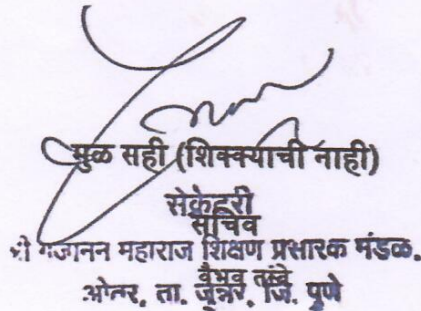 मुळ सही (शिक्क्याची नाही)
सेक्रेटरी
सचिव
श्री गजानन महाराज शिक्षण प्रसारक मंडळ.
वैभव तांबे
ओतूर, ता. जुन्नर, जि. पुणे